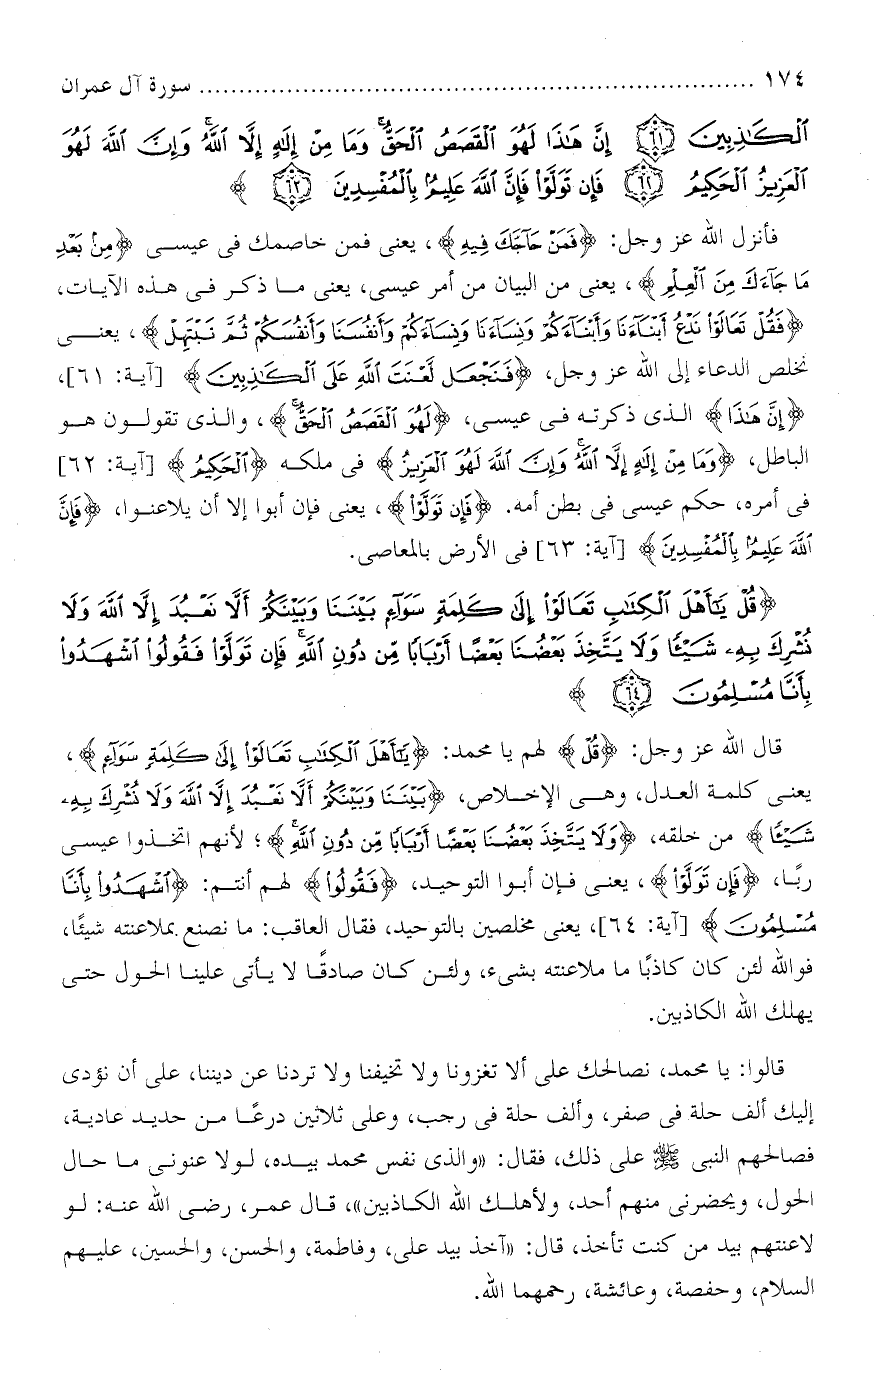 ١٧٤ ........................................................................ سورة آل عمران
ٱلْكَٰذِبِينَ ﴿٦١﴾ إِنَّ هَٰذَا لَهُوَ ٱلْقَصَصُ ٱلْحَقُّ ۚ وَمَا مِنْ إِلَٰهٍ إِلَّا ٱللَّهُ ۚ وَإِنَّ ٱللَّهَ لَهُوَ
ٱلْعَزِيزُ ٱلْحَكِيمُ ﴿٦٢﴾ فَإِن تَوَلَّوْا۟ فَإِنَّ ٱللَّهَ عَلِيمٌۢ بِٱلْمُفْسِدِينَ ﴿٦٣﴾ ﴾
فأنزل الله عز وجل: ﴿فَمَنْ حَآجَّكَ فِيهِ﴾، يعنى فمن خاصمك فى عيسى ﴿مِنۢ بَعْدِ
مَا جَآءَكَ مِنَ ٱلْعِلْمِ﴾، يعنى من البيان من أمر عيسى، يعنى ما ذكر فى هذه الآيات،
﴿فَقُلْ تَعَالَوْا۟ نَدْعُ أَبْنَآءَنَا وَأَبْنَآءَكُمْ وَنِسَآءَنَا وَنِسَآءَكُمْ وَأَنفُسَنَا وَأَنفُسَكُمْ ثُمَّ نَبْتَهِلْ﴾، يعنى
نخلص الدعاء إلى الله عز وجل، ﴿فَنَجْعَل لَّعْنَتَ ٱللَّهِ عَلَى ٱلْكَٰذِبِينَ﴾ [آية: ٦١]،
﴿إِنَّ هَٰذَا﴾ الذى ذكرته فى عيسى، ﴿لَهُوَ ٱلْقَصَصُ ٱلْحَقُّ ۚ﴾، والذى تقولون هو
الباطل، ﴿وَمَا مِنْ إِلَٰهٍ إِلَّا ٱللَّهُ ۚ وَإِنَّ ٱللَّهَ لَهُوَ ٱلْعَزِيزُ﴾ فى ملكه ﴿ٱلْحَكِيمُ﴾ [آية: ٦٢]
فى أمره، حكم عيسى فى بطن أمه. ﴿فَإِن تَوَلَّوْا۟﴾، يعنى فإن أبوا إلا أن يلاعنوا، ﴿فَإِنَّ
ٱللَّهَ عَلِيمٌۢ بِٱلْمُفْسِدِينَ﴾ [آية: ٦٣] فى الأرض بالمعاصى.
﴿قُلْ يَٰٓأَهْلَ ٱلْكِتَٰبِ تَعَالَوْا۟ إِلَىٰ كَلِمَةٍ سَوَآءٍۭ بَيْنَنَا وَبَيْنَكُمْ أَلَّا نَعْبُدَ إِلَّا ٱللَّهَ وَلَا
نُشْرِكَ بِهِۦ شَيْـًٔا وَلَا يَتَّخِذَ بَعْضُنَا بَعْضًا أَرْبَابًا مِّن دُونِ ٱللَّهِ ۚ فَإِن تَوَلَّوْا۟ فَقُولُوا۟ ٱشْهَدُوا۟
بِأَنَّا مُسْلِمُونَ ﴿٦٤﴾ ﴾
قال الله عز وجل: ﴿قُلْ﴾ لهم يا محمد: ﴿يَٰٓأَهْلَ ٱلْكِتَٰبِ تَعَالَوْا۟ إِلَىٰ كَلِمَةٍ سَوَآءٍ﴾،
يعنى كلمة العدل، وهى الإخلاص، ﴿بَيْنَنَا وَبَيْنَكُمْ أَلَّا نَعْبُدَ إِلَّا ٱللَّهَ وَلَا نُشْرِكَ بِهِۦ
شَيْـًٔا﴾ من خلقه، ﴿وَلَا يَتَّخِذَ بَعْضُنَا بَعْضًا أَرْبَابًا مِّن دُونِ ٱللَّهِ ۚ﴾؛ لأنهم اتخذوا عيسى
ربًا، ﴿فَإِن تَوَلَّوْا۟﴾، يعنى فإن أبوا التوحيد، ﴿فَقُولُوا۟﴾ لهم أنتم: ﴿ٱشْهَدُوا۟ بِأَنَّا
مُسْلِمُونَ﴾ [آية: ٦٤]، يعنى مخلصين بالتوحيد، فقال العاقب: ما نصنع بملاعنته شيئًا،
فوالله لئن كان كاذبًا ما ملاعنته بشىء، ولئن كان صادقًا لا يأتى علينا الحول حتى
يهلك الله الكاذبين.
قالوا: يا محمد، نصالحك على ألا تغزونا ولا تخيفنا ولا تردنا عن ديننا، على أن نؤدى
إليك ألف حلة فى صفر، وألف حلة فى رجب، وعلى ثلاثين درعًا من حديد عادية،
فصالحهم النبى ﷺ على ذلك، فقال: «والذى نفس محمد بيده، لولا عنونى ما حال
الحول، ويحضرنى منهم أحد، ولأهلك الله الكاذبين»، قال عمر، رضى الله عنه: لو
لاعنتهم بيد من كنت تأخذ، قال: «آخذ بيد على، وفاطمة، والحسن، والحسين، عليهم
السلام، وحفصة، وعائشة، رحمهما الله.